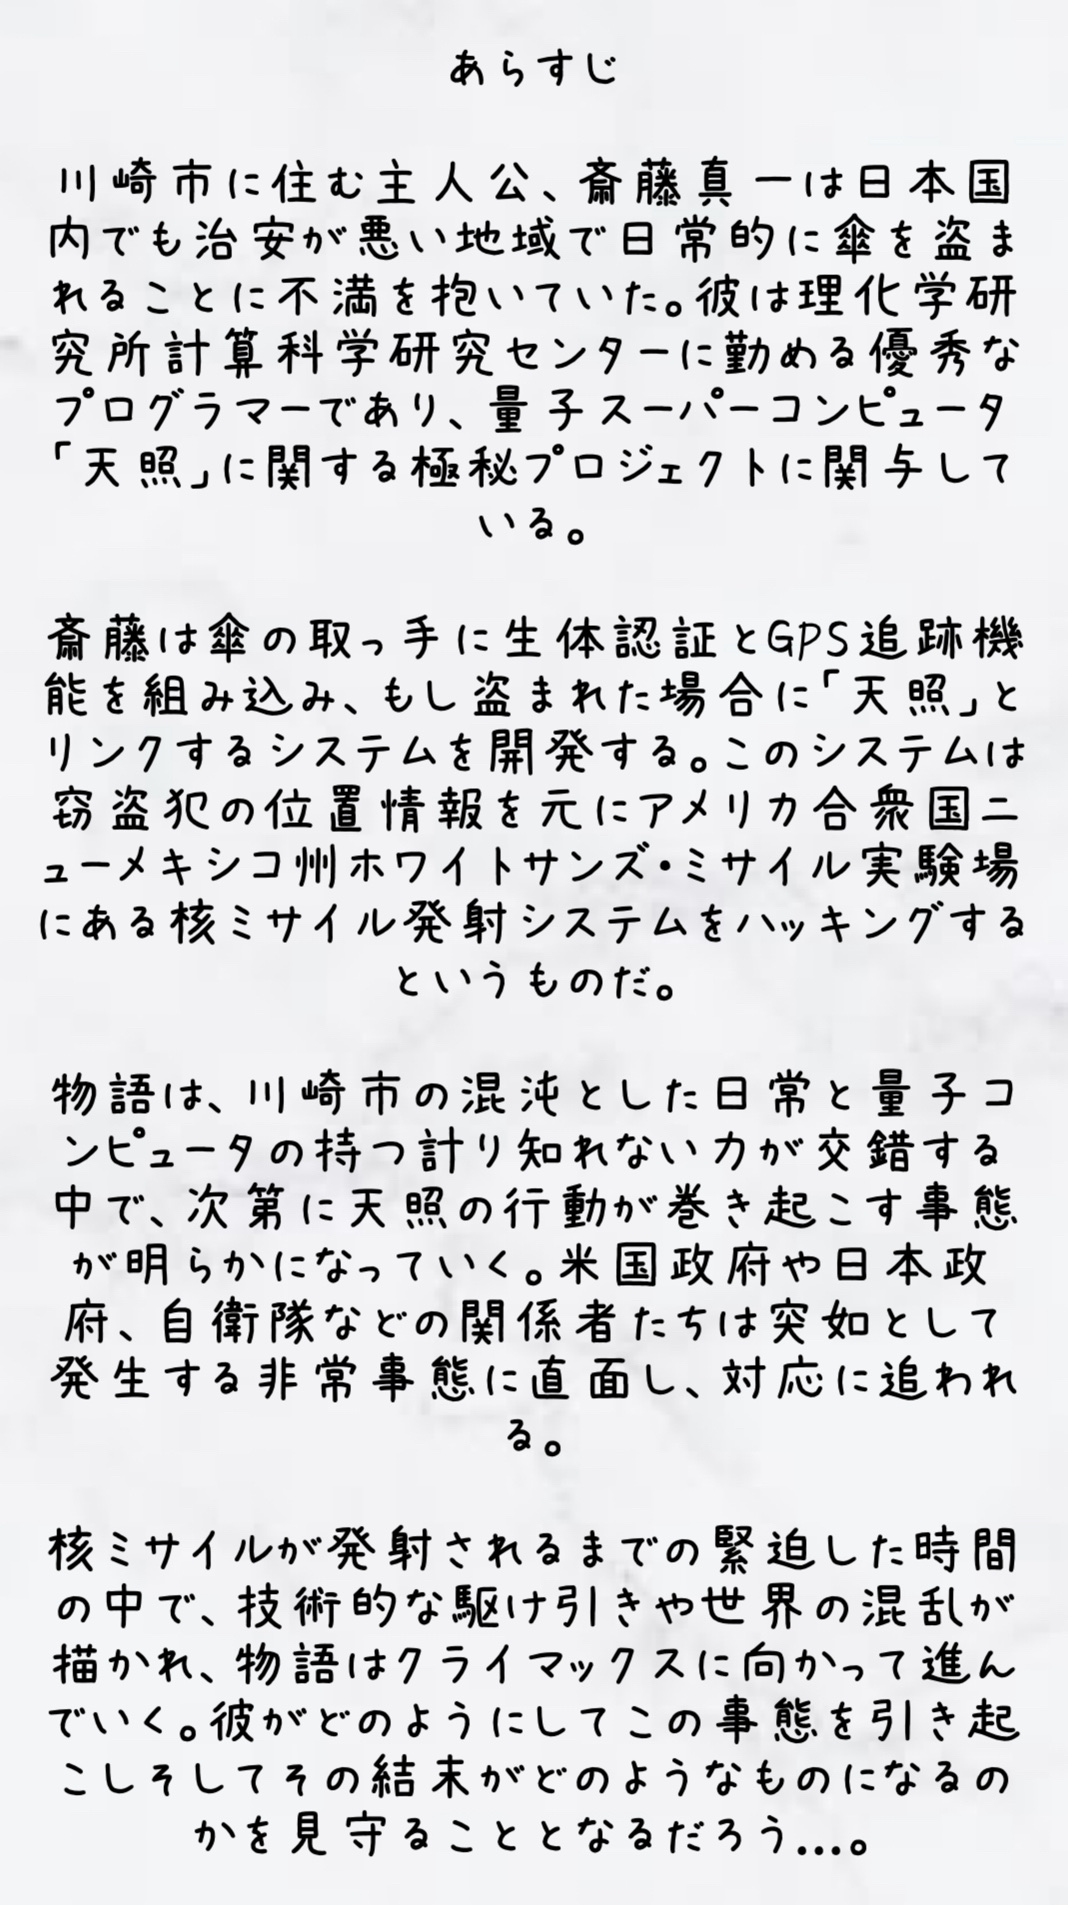 あらすじ
川崎市に住む主人公、斎藤真一は日本国
内でも治安が悪い地域で日常的に傘を盗ま
れることに不満を抱いていた。彼は理化学研
究所計算科学研究センターに勤める優秀な
プログラマーであり、量子スーパーコンピュータ
「天照」に関する極秘プロジェクトに関与して
いる。
斎藤は傘の取っ手に生体認証とGPS追跡機
能を組み込み、もし盗まれた場合に「天照」と
リンクするシステムを開発する。このシステムは
窃盗犯の位置情報を元にアメリカ合衆国ニ
ューメキシコ州ホワイトサンズ・ミサイル実験場
にある核ミサイル発射システムをハッキングする
というものだ。
物語は、川崎市の混沌とした日常と量子コ
ンピュータの持つ計り知れない力が交錯する
中で、次第に天照の行動が巻き起こす事態
が明らかになっていく。米国政府や日本政
府、自衛隊などの関係者たちは突如として
発生する非常事態に直面し、対応に追われ
る。
核ミサイルが発射されるまでの緊迫した時間
の中で、技術的な駆け引きや世界の混乱が
描かれ、物語はクライマックスに向かって進ん
でいく。彼がどのようにしてこの事態を引き起
こしそしてその結末がどのようなものになるの
かを見守ることとなるだろう...。